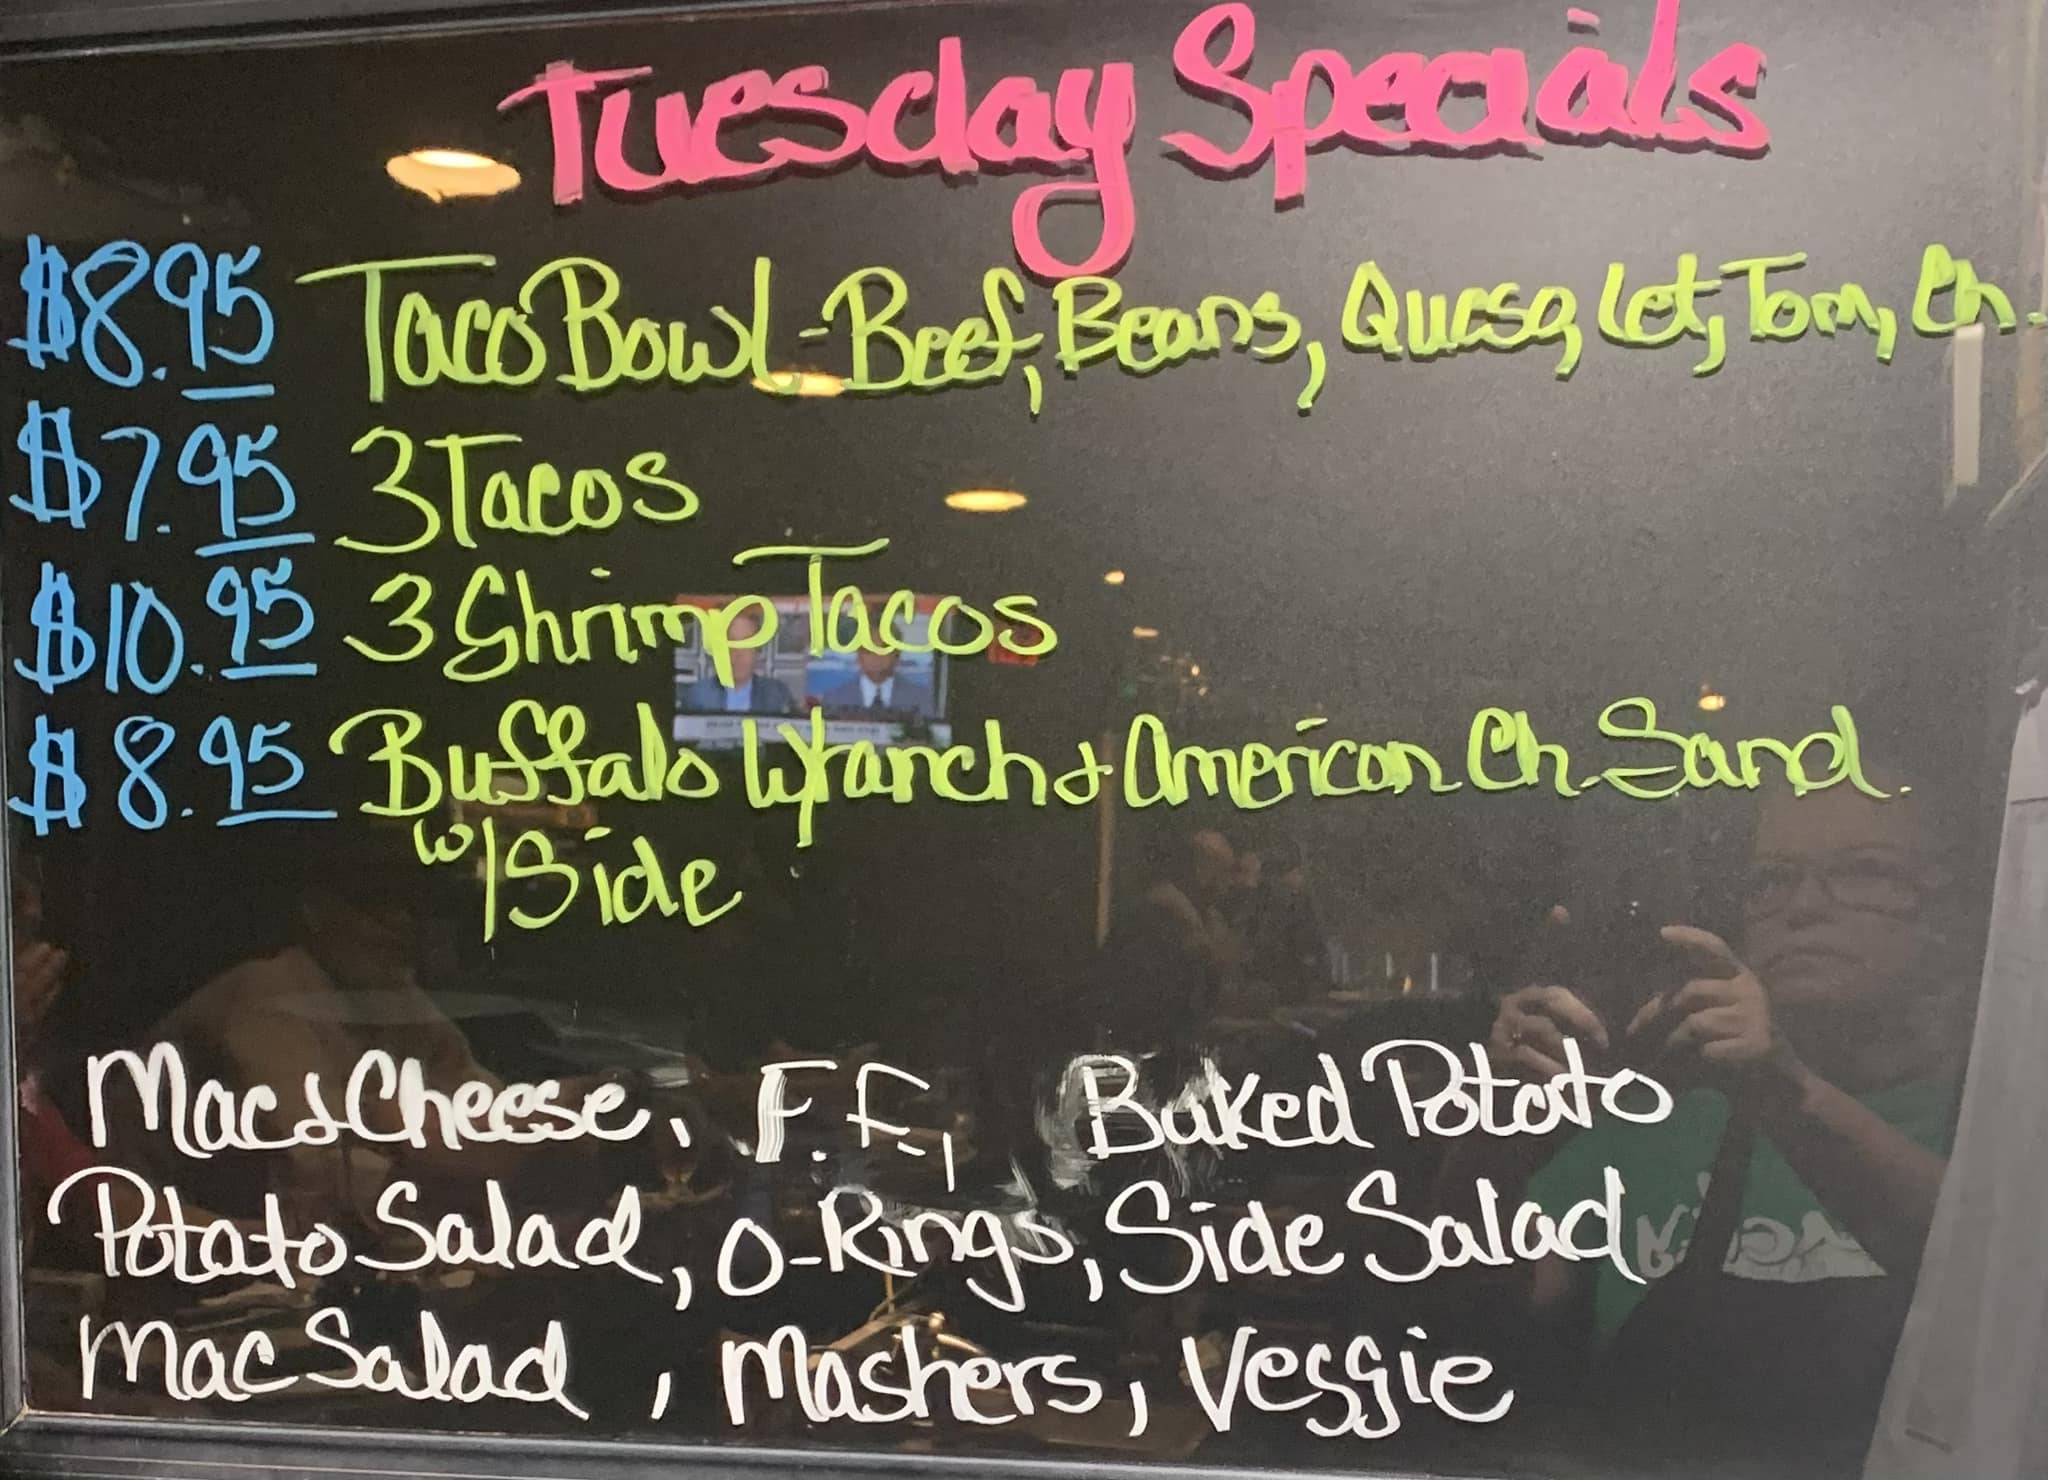 Tuesday Specials
$8.95 Taco Bowl - Beef, Beans, Queso, Let, Tom, Ch.
$7.95 3 Tacos
$10.95 3 Shrimp Tacos
$8.95 Buffalo w/ranch & American Ch. Sand.
w/Side
Mac & Cheese, F.F., Baked Potato
Potato Salad, O-Rings, Side Salad
Mac Salad, Mashers, Veggie